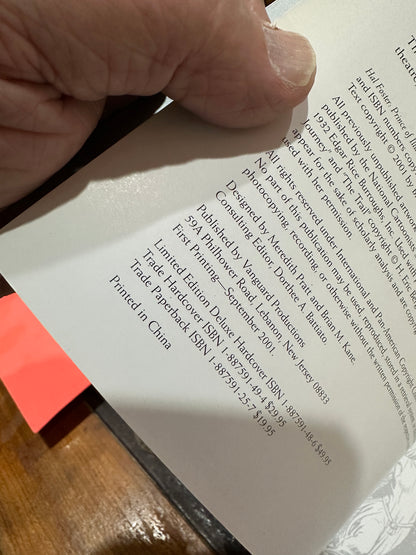 Th
theatri
Hal Foster, Prince
and ISBN numbers
Text copyright © 200
All previously unpublished art
published by the National Cartoon
1932 Edgar Rice Burroughs, Inc. Used
Journey" and "The Trail" copyright © H. E.
appear for the sake of scholarly analysis and are co
used with her permission.
All rights reserved under International and Pan-American Copyri
No part of this publication may be used, reproduced, stored in a retrieval
photocopying, recording, or otherwise without the written permission of the
Designed by Meredith Prat and Brian M. Kane.
Consulting Editor: Dorthee A. Battiato.
Published by Vanguard Productions
59A Philhower Road, Lebanon, New Jersey 08833
First Printing—September 2001.
Limited Edition Deluxe Hardcover ISBN 1-887591-48-6 $49.95
Trade Hardcover ISBN 1-887591-49-4 $29.95
Trade Paperback ISBN 1-887591-25-7 $19.95
Printed in China